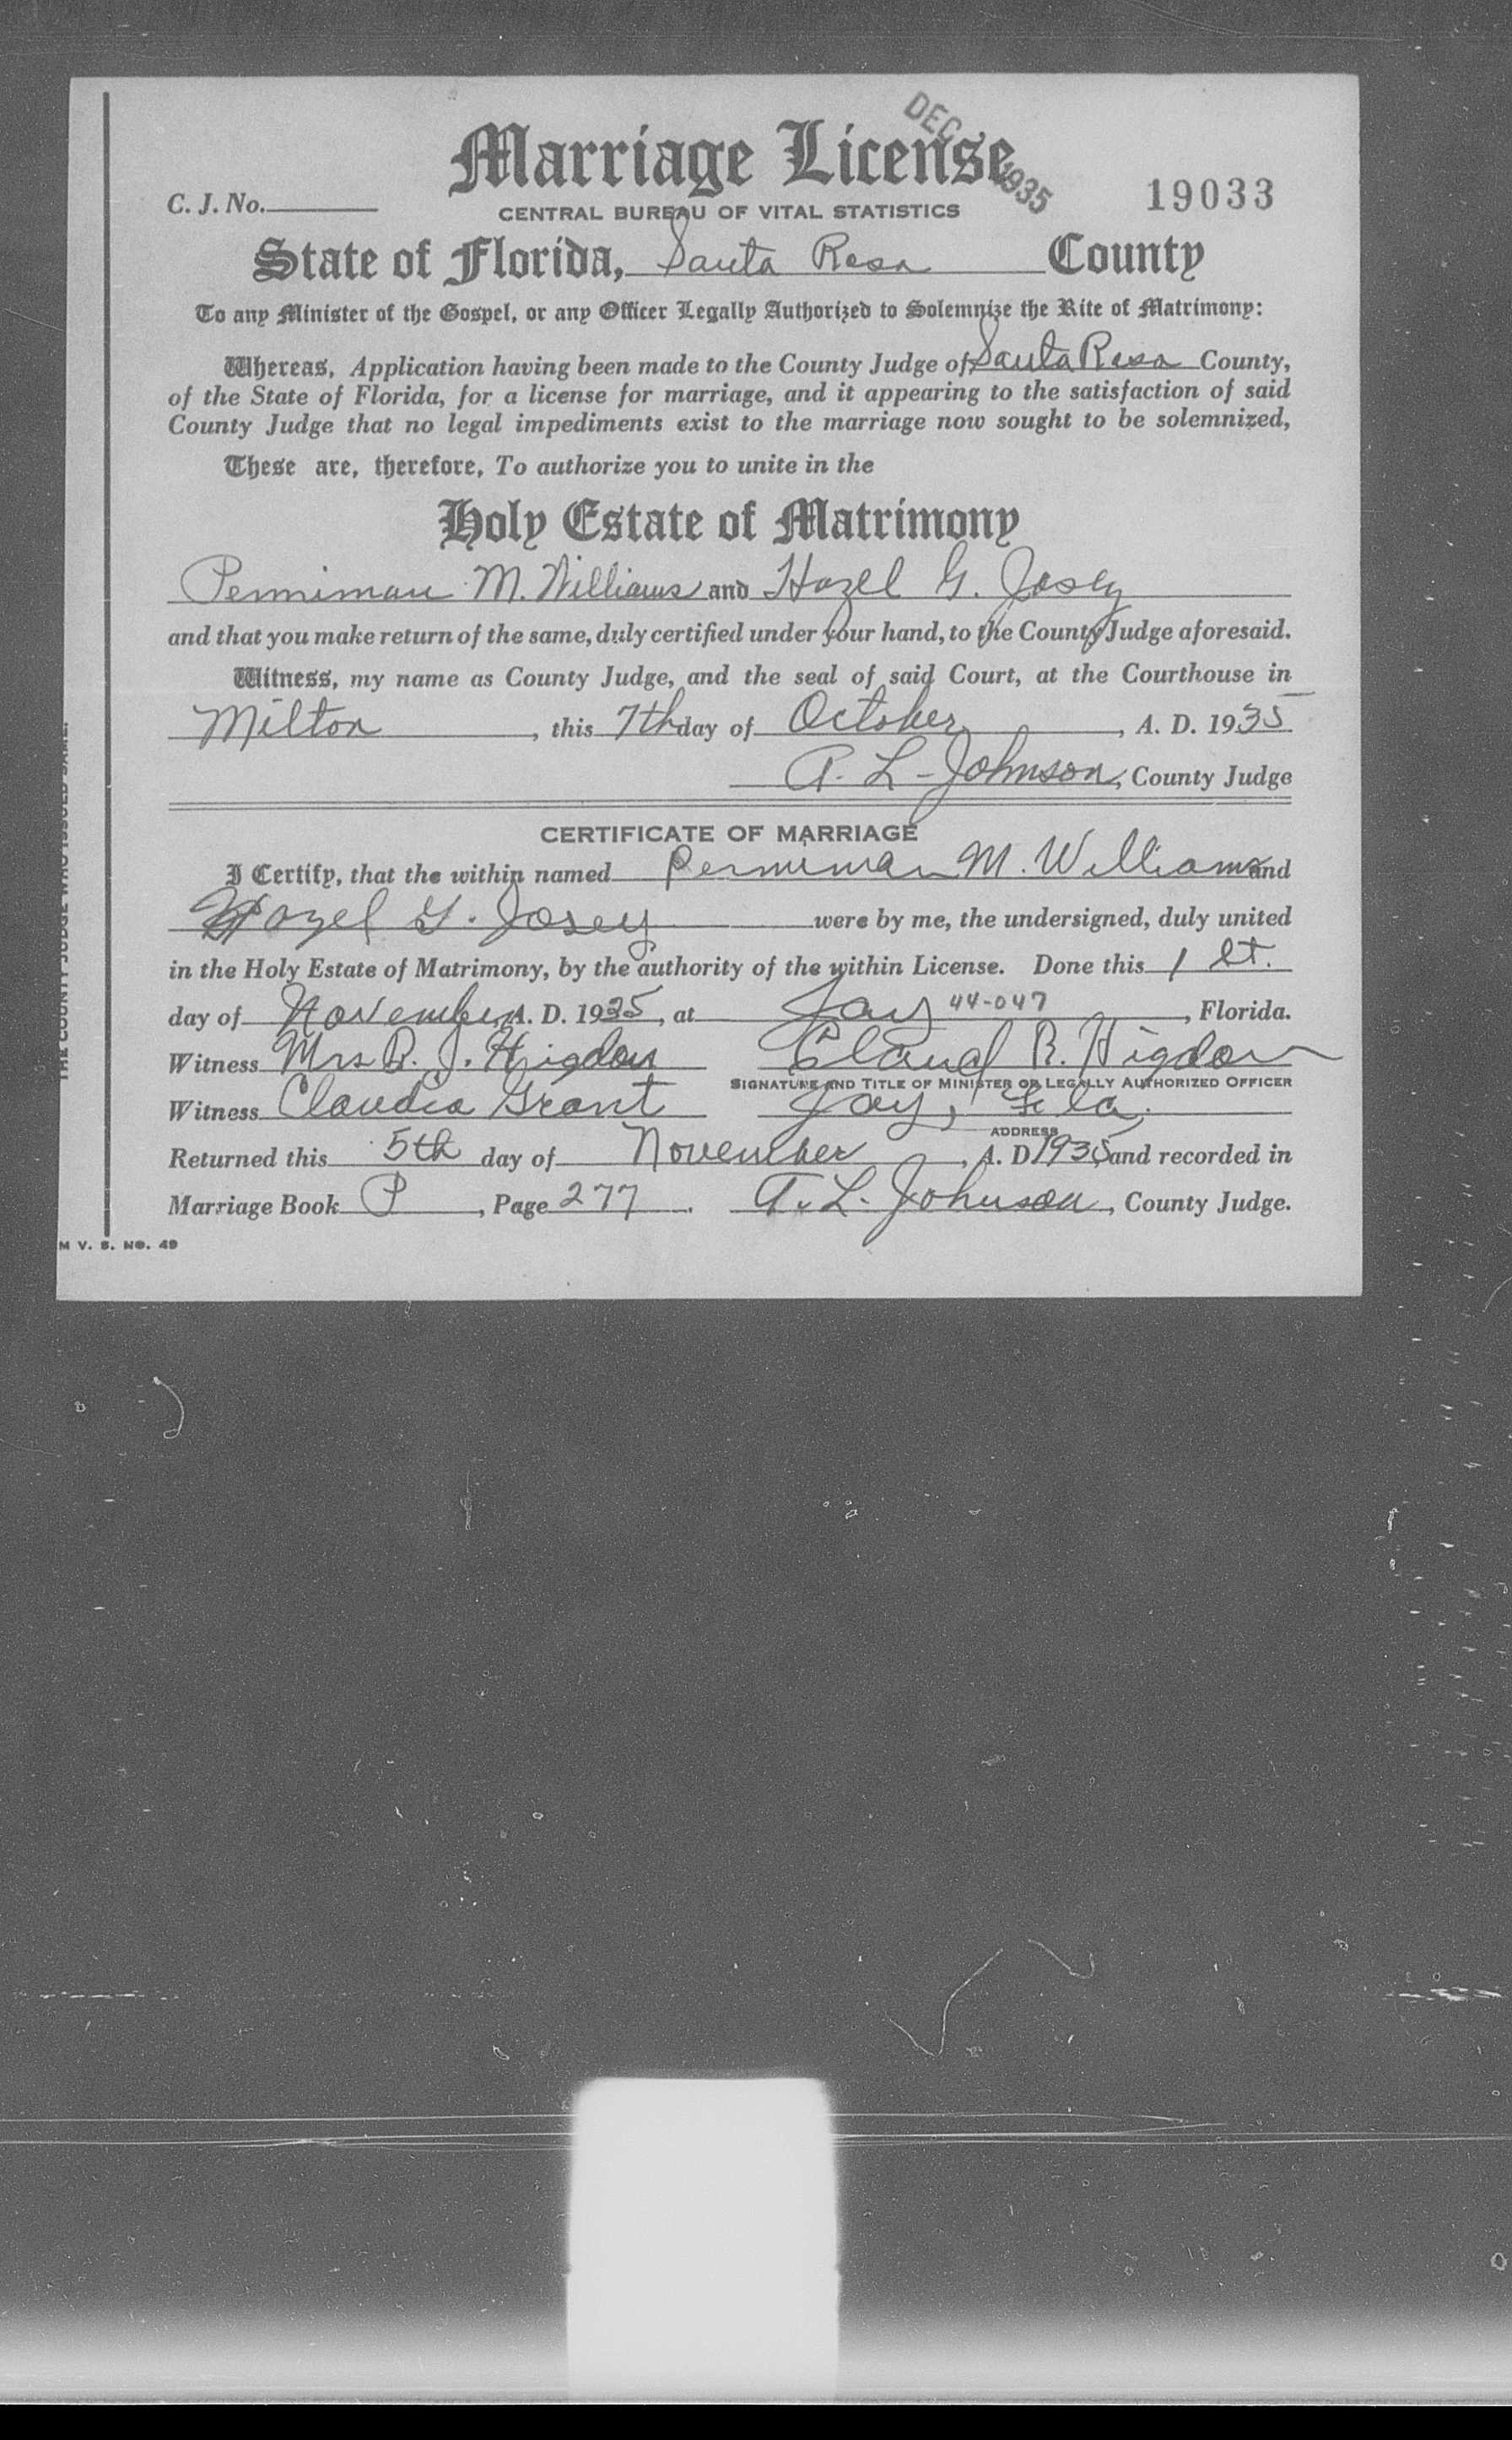 DEC 1935
Marriage License
C. J. No.
19033
CENTRAL BUREAU OF VITAL STATISTICS
State of Florida, Santa Rosa County
To any Minister of the Gospel, or any Officer Legally Authorized to Solemnize the Rite of Matrimony:
Whereas, Application having been made to the County Judge of Santa Rosa County,
of the State of Florida, for a license for marriage, and it appearing to the satisfaction of said
County Judge that no legal impediments exist to the marriage now sought to be solemnized,
These are, therefore, To authorize you to unite in the
Holy Estate of Matrimony
Penniman M. Williams and Hazel G. Josey
and that you make return of the same, duly certified under your hand, to the County Judge aforesaid.
Witness, my name as County Judge, and the seal of said Court, at the Courthouse in
Milton, this 7th day of October, A. D. 1935
L. Johnson, County Judge
CERTIFICATE OF MARRIAGE
I Certify, that the within named Penniman M. Williams and
Hazel G. Josey were by me, the undersigned, duly united
in the Holy Estate of Matrimony, by the authority of the within License. Done this 1 st.
day of November A. D. 1935, at Jay 44-047, Florida.
Witness Mrs R. J. Higdon Claud R. Higdon
SIGNATURE AND TITLE OF MINISTER OR LEGALLY AUTHORIZED OFFICER
Witness Claudia Grant Jay, Fla.
ADDRESS
Returned this 5th day of November, A. D. 1935 and recorded in
Marriage Book P, Page 277. L. Johnson, County Judge.
M V. S. NO. 49
THE COUNTY JUDGE WHO ISSUED SAME.